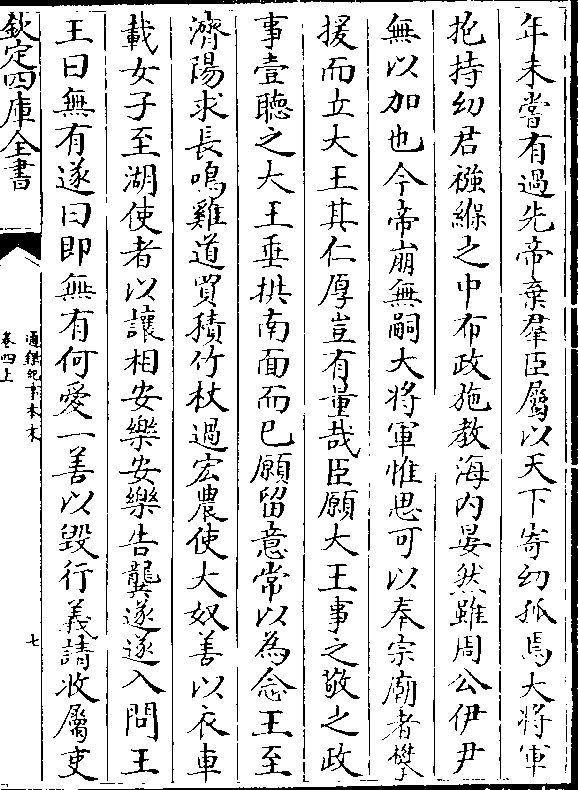 年未嘗有過先帝棄羣臣屬以天下寄幼孤焉大將軍
抱持幼君襁緥之中布政施教海内晏然雖周公伊尹
無以加也今帝崩無嗣大將軍惟思可以奉宗廟者攀
援而立大王其仁厚豈有量哉臣願大王事之敬之政
事壹聽之大王垂拱南面而已願留意常以為念王至
濟陽求長鳴雞道買積竹杖過宏農使大奴善以衣車
載女子至湖使者以讓相安樂安樂告龔遂遂入問王
王曰無有遂曰即無有何愛一善以毁行義請收屬吏
欽定四庫全書
通鑑紀事本末
卷四上
七